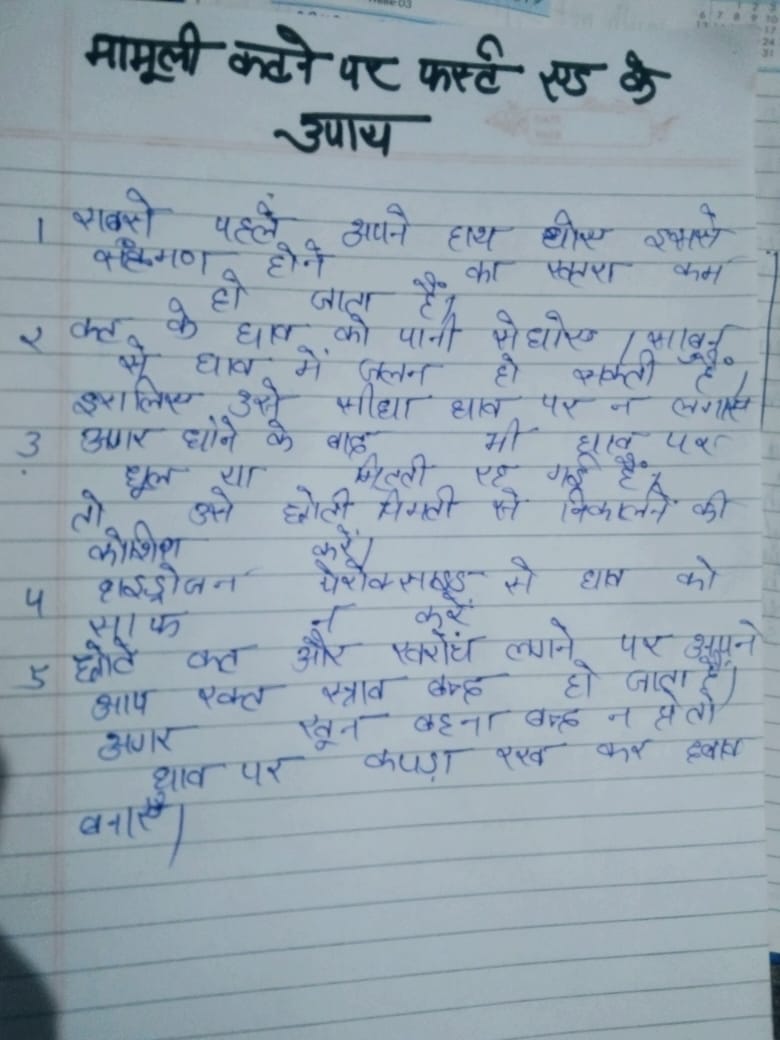 मामूली कटने पर फर्स्ट एड के
उपाय
1 सबसे पहले अपने हाथ धोए इससे
संक्रिमण होने का खतरा कम
हो जाता हैं।
२ कट के घाव को पानी सेधोए। साबुन
से घाव में जलन हो सकती है।
इसलिए उसे सीधा घाव पर न लगाए
3 अगर धोने के बाद भी घाव पर
धूल या मिटटी रह गई हैं।
तो उसे छोटी चिमटी से निकालने की
कोशिश करें।
4 हाइड्रोजन पेरोक्साइड से घाव को
साफ न करें
5 छोटे कट और खरोंच लगने पर अपने
आप रक्त स्त्राव बन्द हो जाता हैं।
अगर खून बहना बन्द न हो तो
घाव पर कपड़ा रख कर दबाव
बनाएँ।